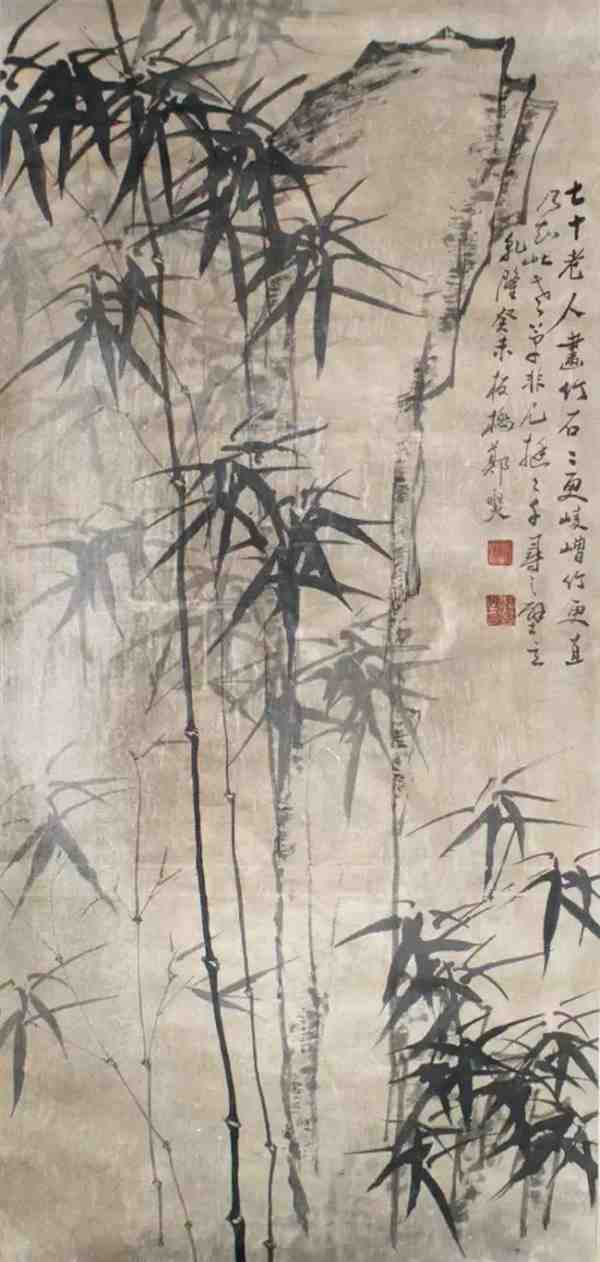 七十老人畫竹石〻更崚嶒竹更直
乃知此老筆非凡挺〻千尋之壁立
乾隆癸未板橋鄭燮